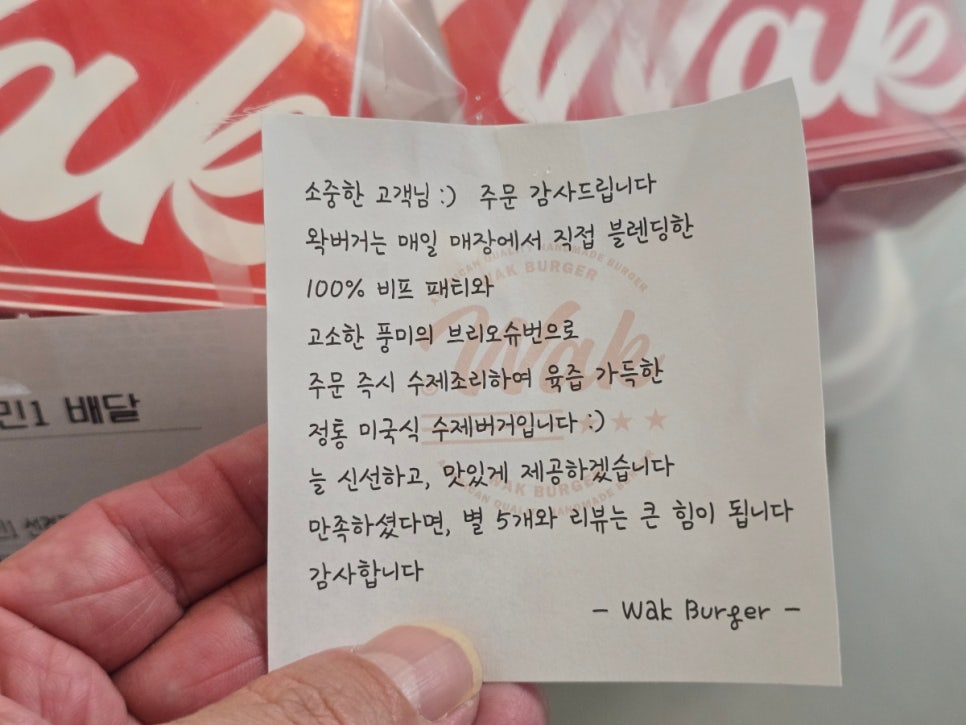 Wak
Wak
소중한 고객님 :) 주문 감사드립니다
왁버거는 매일 매장에서 직접 블렌딩한
100% 비프 패티와
고소한 풍미의 브리오슈번으로
주문 즉시 수제조리하여 육즙 가득한
정통 미국식 수제버거입니다 :)
늘 신선하고, 맛있게 제공하겠습니다
만족하셨다면, 별 5개와 리뷰는 큰 힘이 됩니다
감사합니다
- Wak Burger -
QUALITY HANDMADE BURGER
WAK BURGER
Wak
WAK BURGER
민1 배달